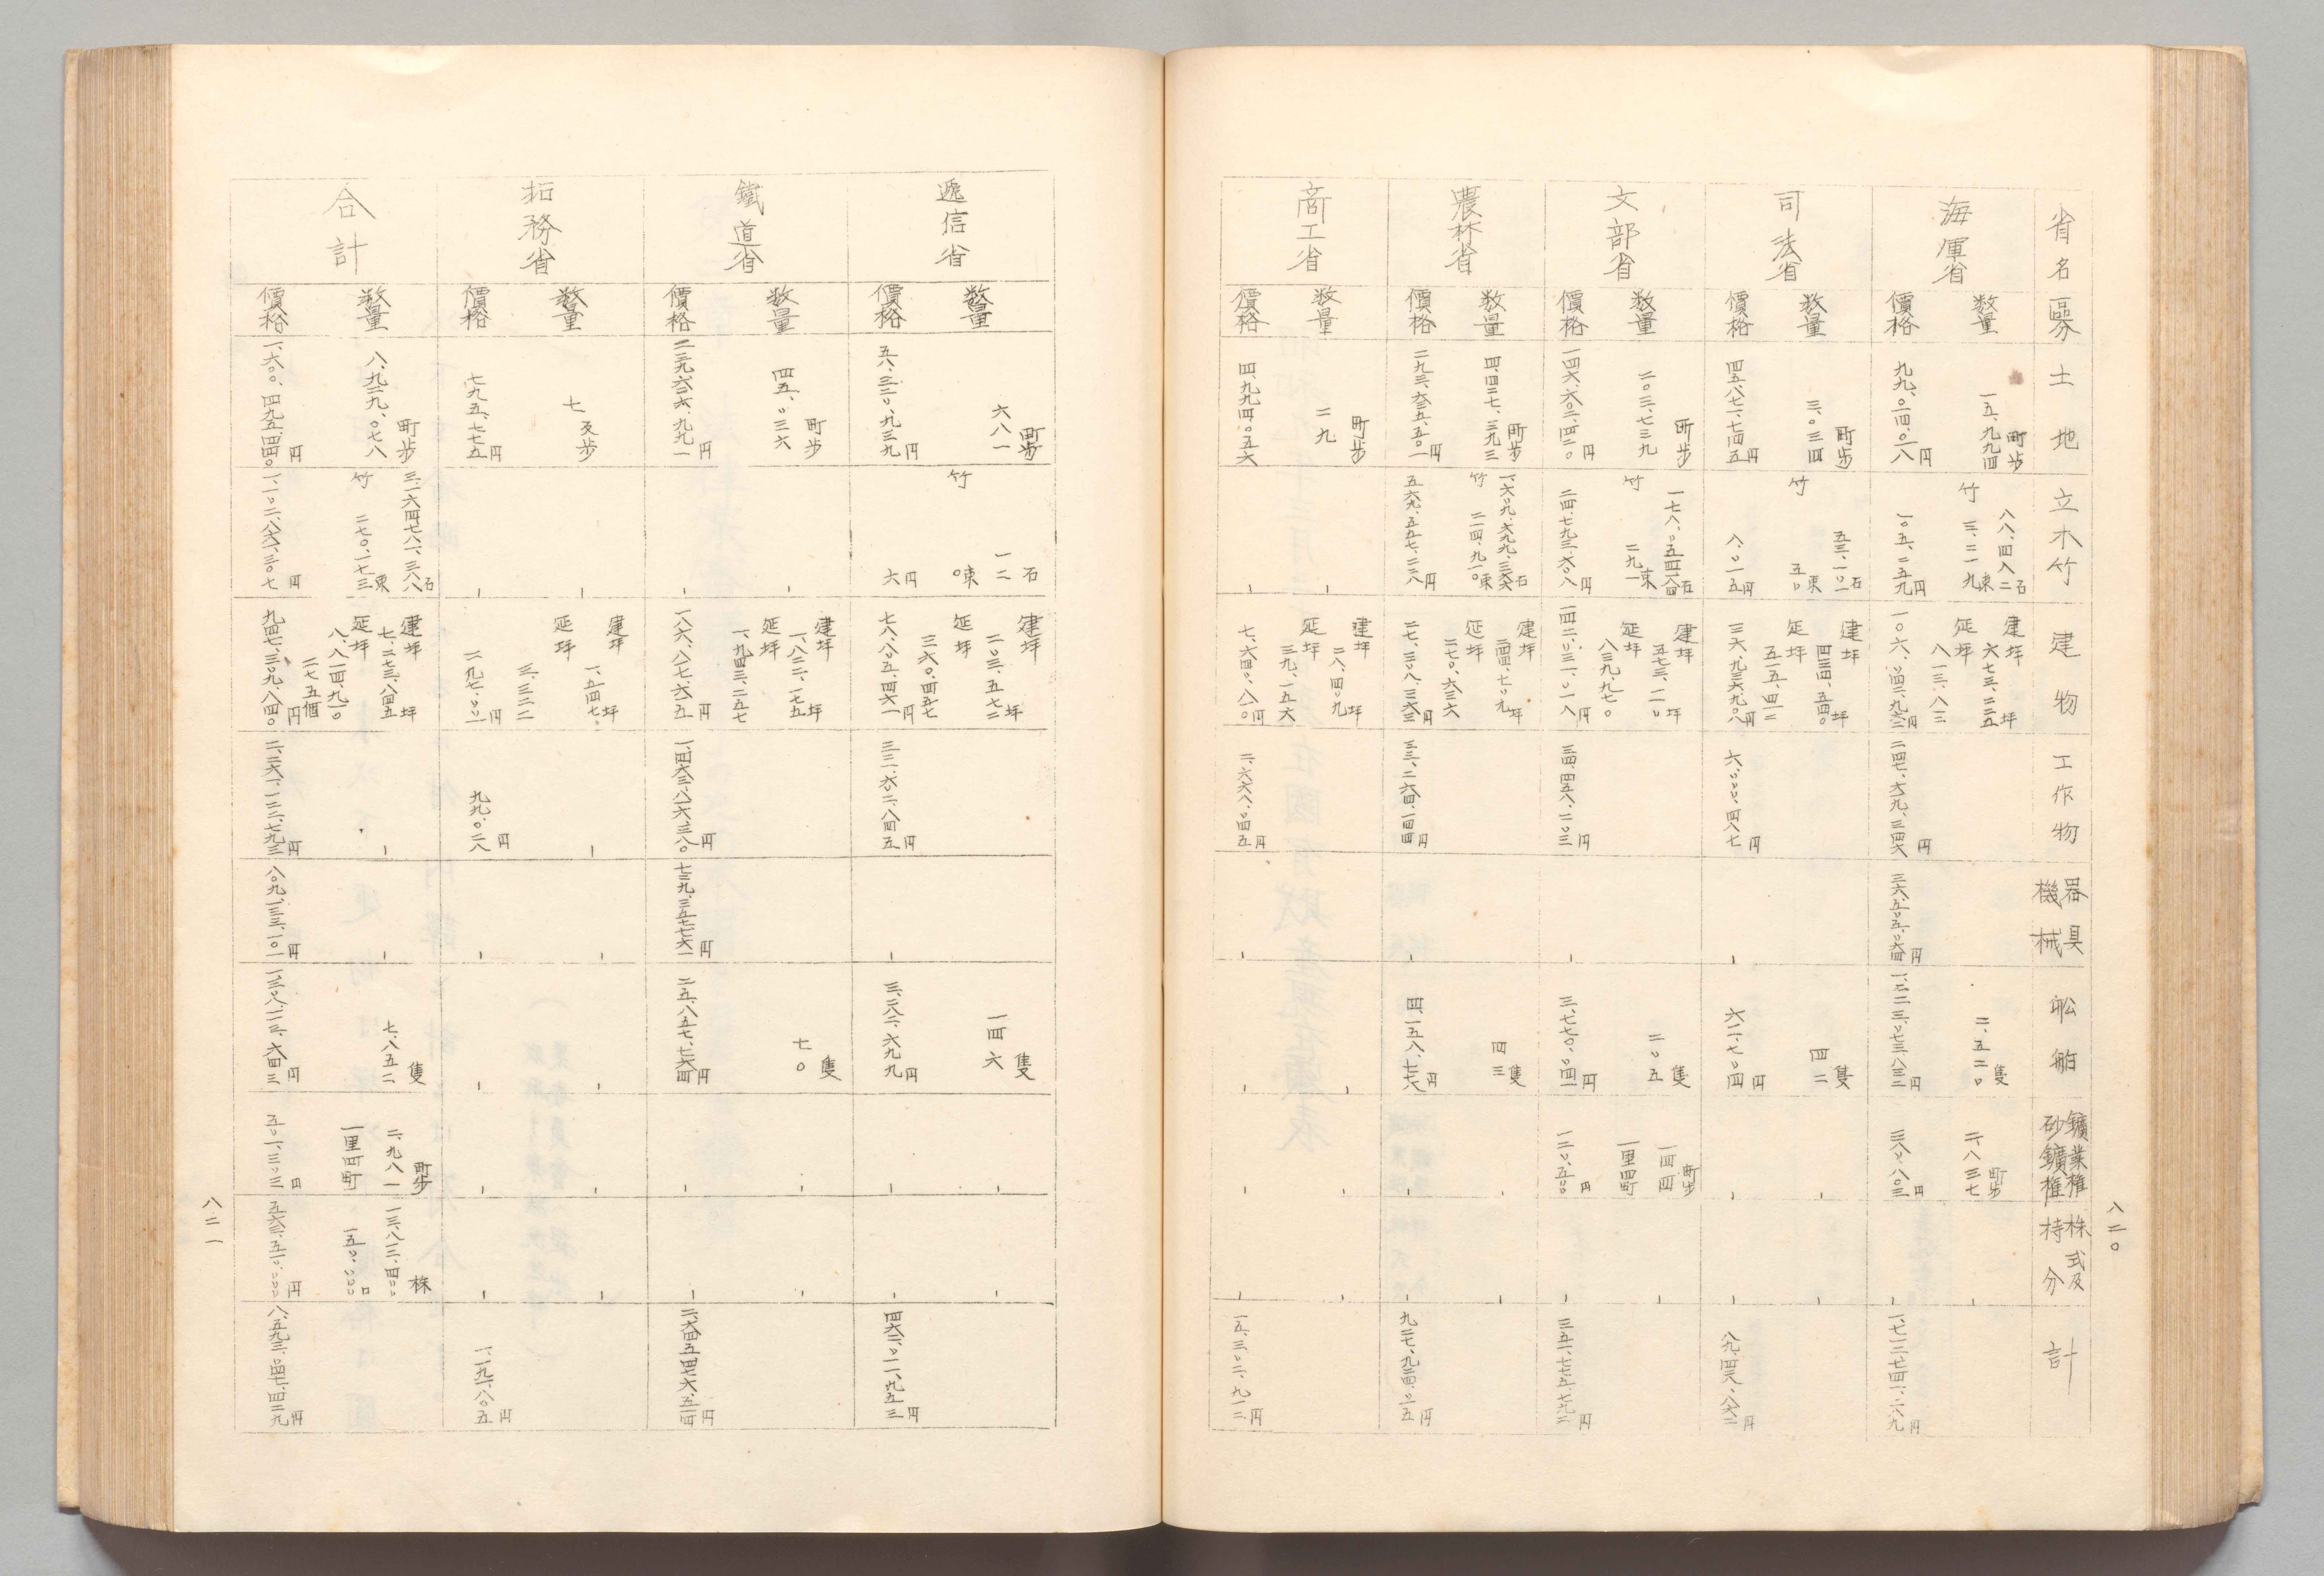 八二〇
省名 區分 土地 立木竹 建物 工作物 器具機械 船舶 鑛業権砂鑛権 株式及持分 計
海軍省
数量 一五、九九四町歩 八八、四八二石 竹 三、二一九束 建坪 六七三、二三五坪 延坪 八一三、八三 二、五二〇隻 二、八三七町歩
價格 一〇五、二五九円
司法省
数量 三、〇三四町歩 五三、一〇二石 竹 五〇束 建坪 延坪 五一五、四一二 四二隻
價格 八、〇一五円 六、〇〇〇、四八七円 六一、七〇四円
文部省
数量 二〇三、七三九町歩 竹 二九一束 建坪 五七三、二一〇坪 延坪 八三九、九七〇 二〇五隻 一四四町歩 一里四町
價格 一四六、六〇二、四二〇円 二四、七九三、六〇八円 一四二、〇三一、〇一八円 三四、四五八、二〇三円 三、七七〇、〇四一円 一二〇、五〇〇円
農林省
数量 四、四二七、三九三町歩 竹 二一四、九一〇束 建坪 延坪 二七〇、六三六 四三隻
價格 五六九、五五七、二三八円 三三、二六四、一四四円
商工省
数量 二九町歩 建坪 二八、四〇九坪 延坪 三九、一五六
價格 四、九九四、〇五六 七、六四〇、八一〇円 二、六六八、〇四五円 一五、三〇二、九一二円
逓信省
数量 六八一町歩 一二石 竹 〇束 建坪 二〇三、五七二坪 延坪 三六〇、四五七 一四六隻
價格 五八、三二〇、九三九円 六円 七八、八〇五、四六一円 三三一、六〇二、八四五円 三、二八二、六九九円 四六二、〇一一、九五三円
鐵道省
数量 四五、〇三六町歩 建坪 一、八二二、一七五坪 延坪 一、九四三、二五七 七〇隻
價格 二三九、六二六、九九一円 一八六、八七一、六一五円 一、四六三、八六六、三八〇円 七二九、三五七、七六一円 二五、八五七、七六四円
拓務省
数量 七反歩 建坪 一、五四七坪 延坪 三、三二二
價格 七九五、七七五円 二九七、〇〇二円 九九、〇二八円 一、一九一、八〇五円
合計
数量 八、九二九、〇七八町歩 竹 二七〇、一七三束 建坪 七、二七三、八四五坪 延坪 八、八一四、九一〇 二七五個 七、八五二隻 二、九八一町歩 一里四町 一三、八三二、四〇〇株 一五〇、〇〇〇口
價格 一、六〇〇、四九五、四四〇円 一、一〇二、八六一、三〇七円 九四七、三〇九、八四〇円 二、二六一、一三二、七九三円 八〇九、一三三、一〇一円 一、三〇八、一二三、六四三円 五〇一、三〇三円 五六三、五一〇、〇〇〇円 八、五九三、〇四七、四二九円
八二一